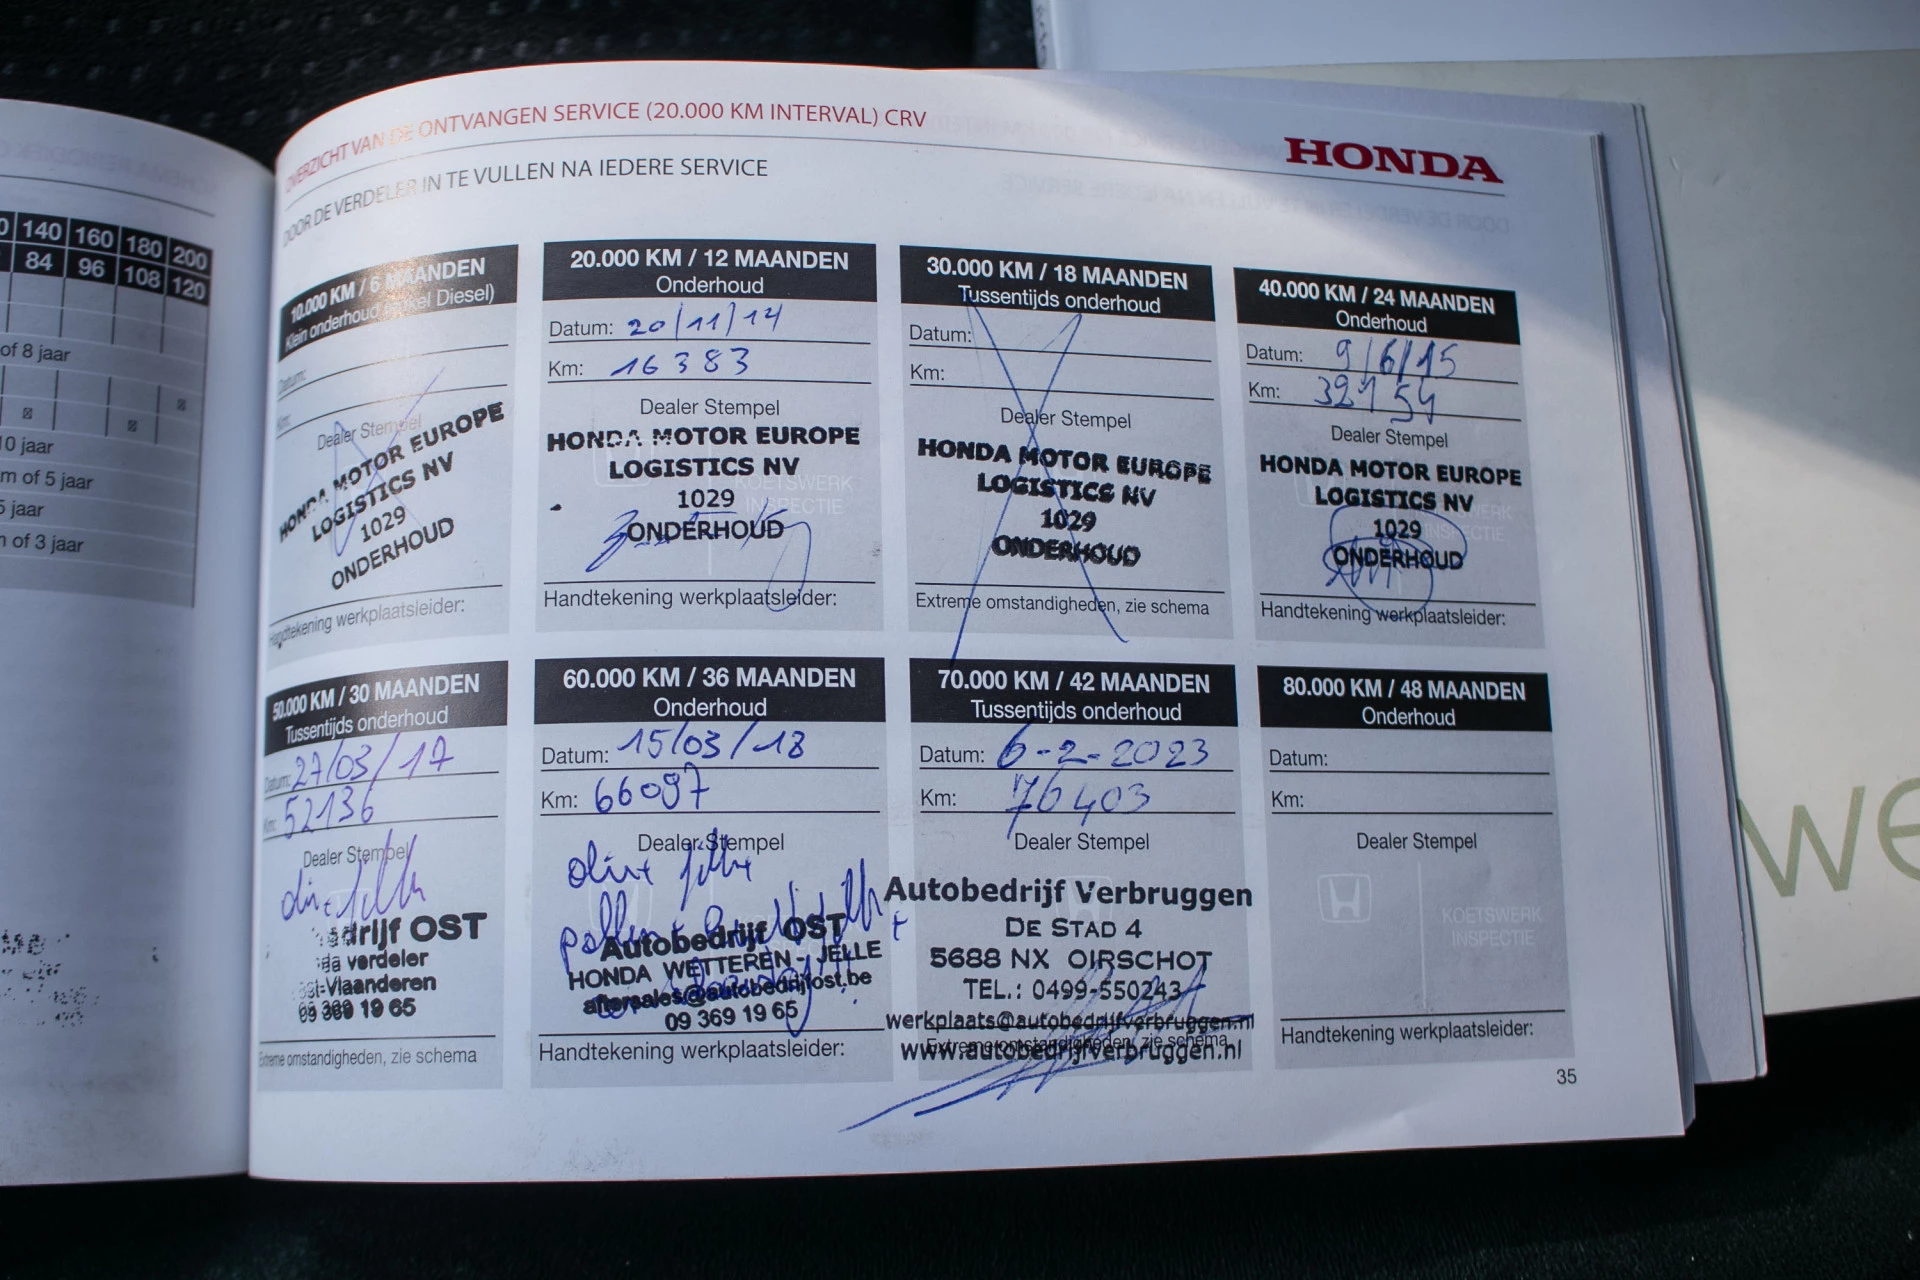 140 160 180 200
84 96 108 120
of 8 jaar
10 jaar
m of 5 jaar
5 jaar
n of 3 jaar
OVERZICHT VAN DE ONTVANGEN SERVICE (20.000 KM INTERVAL) CRV
HONDA
DOOR DE VERDELER IN TE VULLEN NA IEDERE SERVICE
10.000 KM / 6 MAANDEN
Klein onderhoud (enkel Diesel)
Datum:
Km:
Dealer Stempel
HONDA MOTOR EUROPE
LOGISTICS NV
1029
ONDERHOUD
Handtekening werkplaatsleider:
20.000 KM / 12 MAANDEN
Onderhoud
Datum: 20/11/14
Km: 16383
Dealer Stempel
HONDA MOTOR EUROPE
LOGISTICS NV
KOETSWERK
1029
INSPECTIE
ONDERHOUD
Handtekening werkplaatsleider:
30.000 KM / 18 MAANDEN
Tussentijds onderhoud
Datum:
Km:
Dealer Stempel
HONDA MOTOR EUROPE
LOGISTICS NV
1029
ONDERHOUD
Extreme omstandigheden, zie schema
40.000 KM / 24 MAANDEN
Onderhoud
Datum: 9/6/15
Km: 32154
Dealer Stempel
HONDA MOTOR EUROPE
LOGISTICS NV
1029
ONDERHOUD
Handtekening werkplaatsleider:
50.000 KM / 30 MAANDEN
Tussentijds onderhoud
Datum: 27/03/17
Km: 52136
Dealer Stempel
drijf OST
da verdeler
st-Vlaanderen
09 369 19 65
Extreme omstandigheden, zie schema
60.000 KM / 36 MAANDEN
Onderhoud
Datum: 15/03/18
Km: 66097
Dealer Stempel
Autobedrijf OST
HONDA WETTEREN - JELLE
aftersales@autobedrijfost.be
09 369 19 65
Handtekening werkplaatsleider:
70.000 KM / 42 MAANDEN
Tussentijds onderhoud
Datum: 6-2-2023
Km: 76403
Dealer Stempel
Autobedrijf Verbruggen
DE STAD 4
5688 NX OIRSCHOT
TEL.: 0499-550243
werkplaats@autobedrijfverbruggen.nl
Extreme omstandigheden, zie schema
www.autobedrijfverbruggen.nl
80.000 KM / 48 MAANDEN
Onderhoud
Datum:
Km:
Dealer Stempel
KOETSWERK
INSPECTIE
Handtekening werkplaatsleider:
35
we